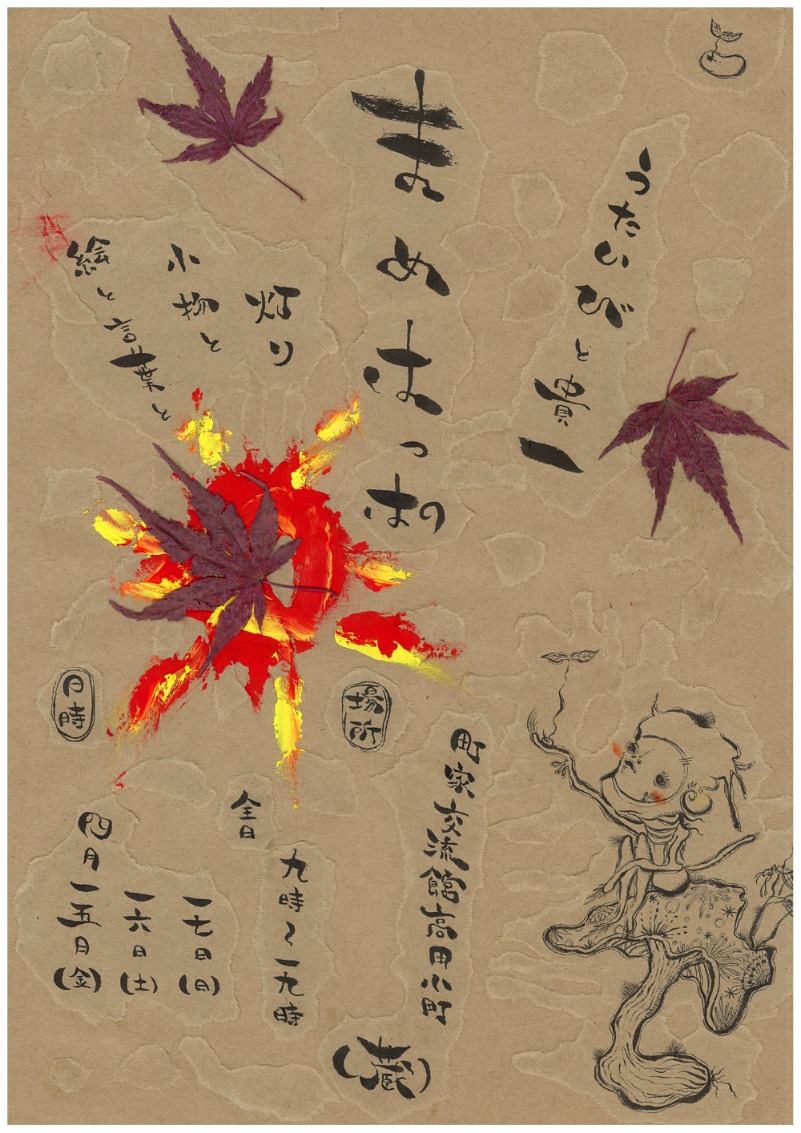 うたいびと貴一
まめはっぱの
絵と言葉と
小物と
灯り
日時
四月一五日(金)
一六日(土)
一七日(日)
全日
九時〜一九時
場所
町家交流館高田小町
(蔵)